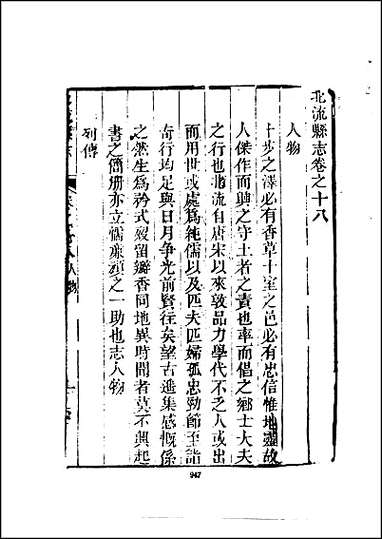 北流縣志卷之十八
人物
十步之澤必有香草十室之邑必有忠信惟地靈故
人傑作而興之守土者之責也率而倡之鄉士大夫
之行也北流自唐宋以來敦品力學代不乏人或出
而用世或處爲純儒以及匹夫匹婦孤忠勁節至誼
奇行均足與日月争光前賢往矣望古遥集感慨係
之然生爲矜式殁留馨香同地異時聞者莫不興起
書之簡册亦立懦亷頑之一助也志人物
列傳
人物
947